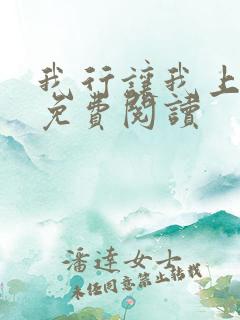 我行讓我上
免費閱讀
潘達女士
未任同意禁止轉載